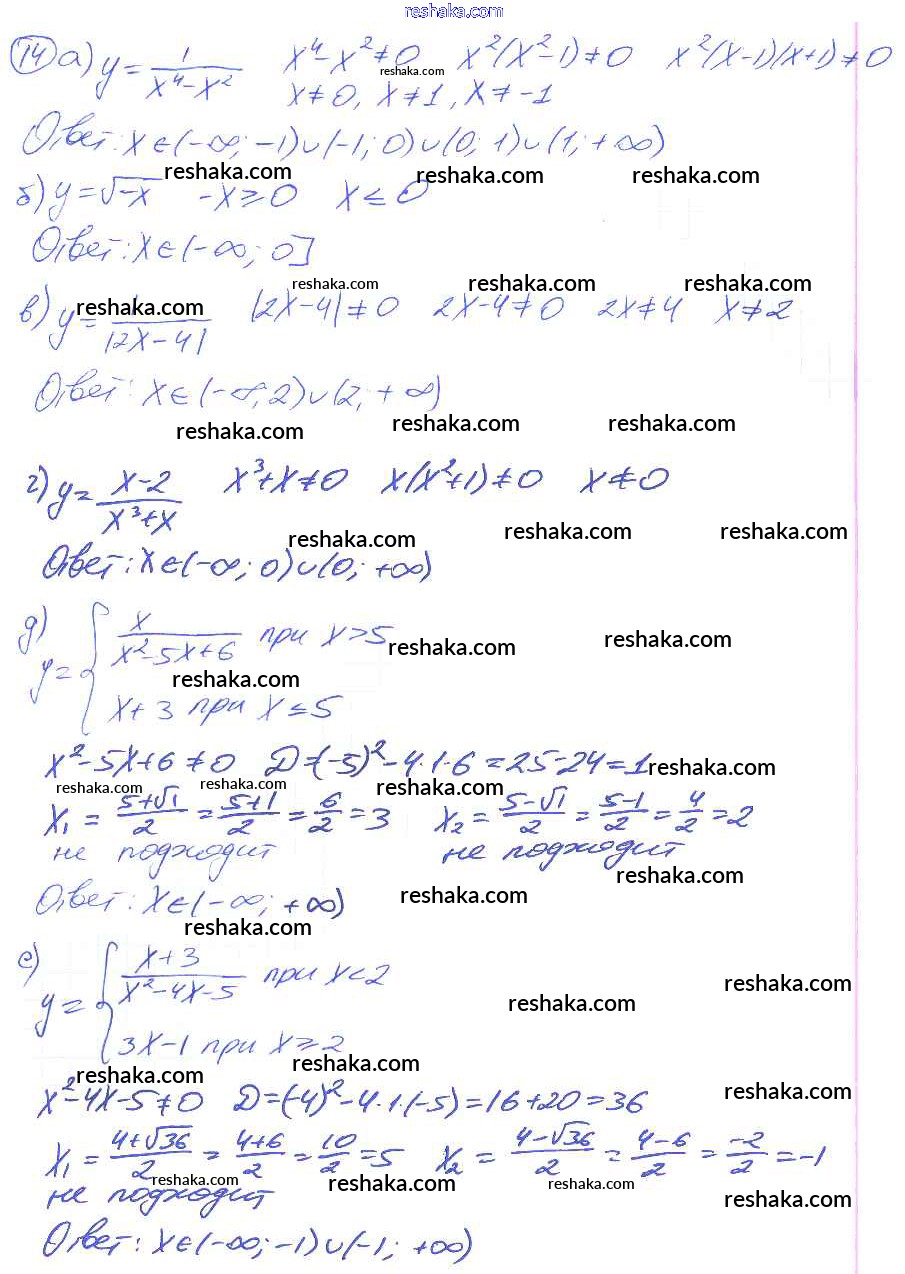 reshaka.com
14 а) y = 1/(x⁴-x²) x⁴-x²≠0 x²(x²-1)≠0 x²(x-1)(x+1)≠0
reshaka.com
x≠0, x≠1, x≠-1
Ответ: x∈(-∞; -1)∪(-1; 0)∪(0; 1)∪(1; +∞)
reshaka.com reshaka.com reshaka.com
б) y = √-x -x≥0 x≤0
Ответ: x∈(-∞; 0]
reshaka.com reshaka.com reshaka.com
reshaka.com
в) y = 1/|2x-4| |2x-4|≠0 2x-4≠0 2x≠4 x≠2
Ответ: x∈(-∞; 2)∪(2; +∞)
reshaka.com reshaka.com reshaka.com
г) y = (x-2)/(x³+x) x³+x≠0 x(x²+1)≠0 x≠0
reshaka.com reshaka.com reshaka.com
Ответ: x∈(-∞; 0)∪(0; +∞)
д) y = { x/(x²-5x+6) при x>5
reshaka.com reshaka.com
reshaka.com
x+3 при x≤5
x²-5x+6≠0 D=(-5)²-4·1·6=25-24=1
reshaka.com reshaka.com reshaka.com reshaka.com
x₁ = (5+√1)/2 = (5+1)/2 = 6/2 = 3 x₂ = (5-√1)/2 = (5-1)/2 = 4/2 = 2
не подходит не подходит
reshaka.com
Ответ: x∈(-∞; +∞)
reshaka.com reshaka.com
е) y = { (x+3)/(x²-4x-5) при x<2
reshaka.com reshaka.com
3x-1 при x≥2
reshaka.com reshaka.com reshaka.com
x²-4x-5≠0 D=(-4)²-4·1·(-5)=16+20=36
x₁ = (4+√36)/2 = (4+6)/2 = 10/2 = 5 x₂ = (4-√36)/2 = (4-6)/2 = -2/2 = -1
reshaka.com reshaka.com reshaka.com reshaka.com
не подходит
Ответ: x∈(-∞; -1)∪(-1; +∞)